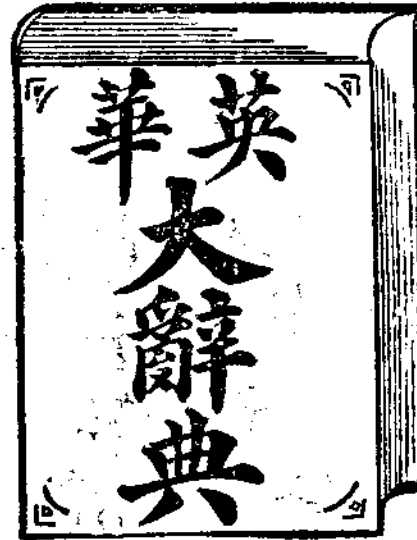 英華
大
辭
典